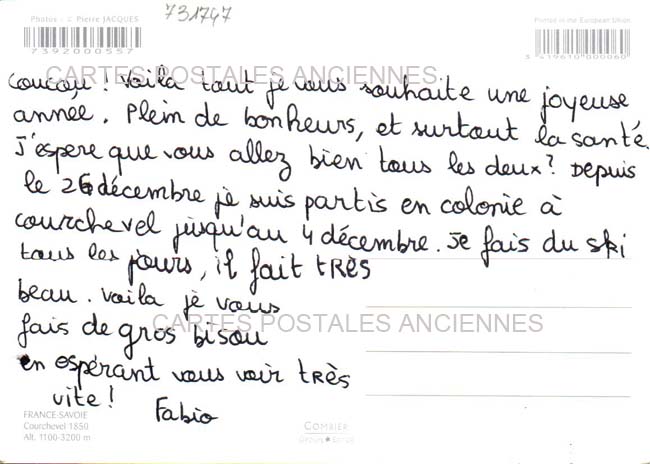 Photos : © Pierre JACQUES
731747
Printed in the European Union
7392000557
3 419610 000060
CARTES POSTALES ANCIENNES
coucou ! voila tout je vous souhaite une joyeuse
année. Plein de bonheurs, et surtout la santé.
J'éspere que vous allez bien tous les deux ? Depuis
le 26 décembre je suis partis en colonie à
courchevel jusqu'au 4 décembre. Je fais du ski
tous les jours, il fait tRès
beau. voila je vous
fais de gros bisou
CARTES POSTALES ANCIENNES
en espérant vous voir tRès
vite !
Fabio
FRANCE-SAVOIE
Courchevel 1850
Alt. 1100-3200 m
COMBIER